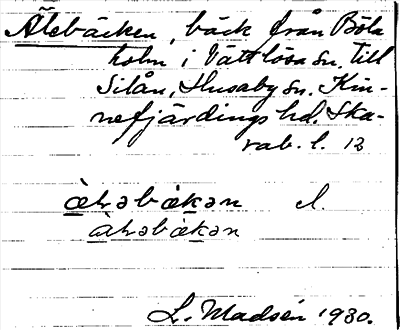 Ålebäcken, bäck från Böla
holm i Vättlösa sn. till
Silån, Husaby sn. Kin-
nefjärdings hd. Ska-
rab. l. 12
l.
L. Madsén 1930.